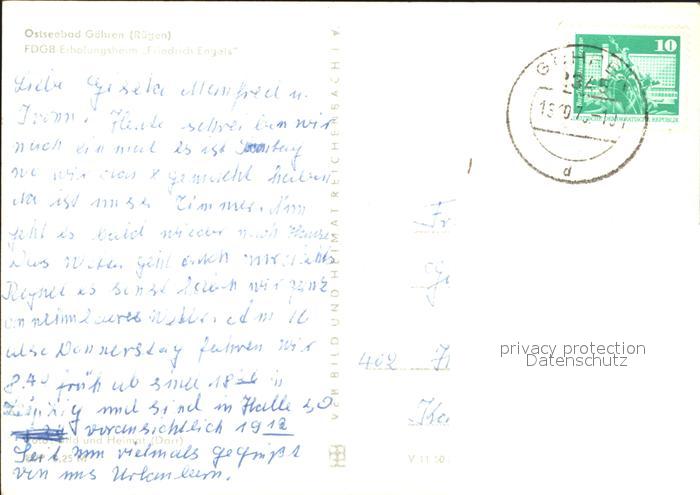 Ostseebad Göhren (Rügen)
FDGB-Erholungsheim „Friedrich Engels"
Liebe Gisela Manfred u.
Ivonn. Heute schreiben wir
noch einmal es ist Sonntag
wo wir das x gemacht haben
da ist unser Zimmer. Nun
geht es bald wieder nach Hause
Das Wetter geht
Regnet es sonst haben wir ganz
annehmbares Wetter. Am 16
also Donnerstag fahren wir
8.40 früh ab sind in
Leipzig und sind in Halle So
voraussichtlich 19 12
Foto: Bild und Heimat (Darr)
Seit nun vielmals gegrüßt
von uns Urlaubern.
VEB BILD UND HEIMAT REICHENBACH I. V.
V 11 50
10
DEUTSCHE DEMOKRATISCHE REPUBLIK
d
402
privacy protection
Datenschutz